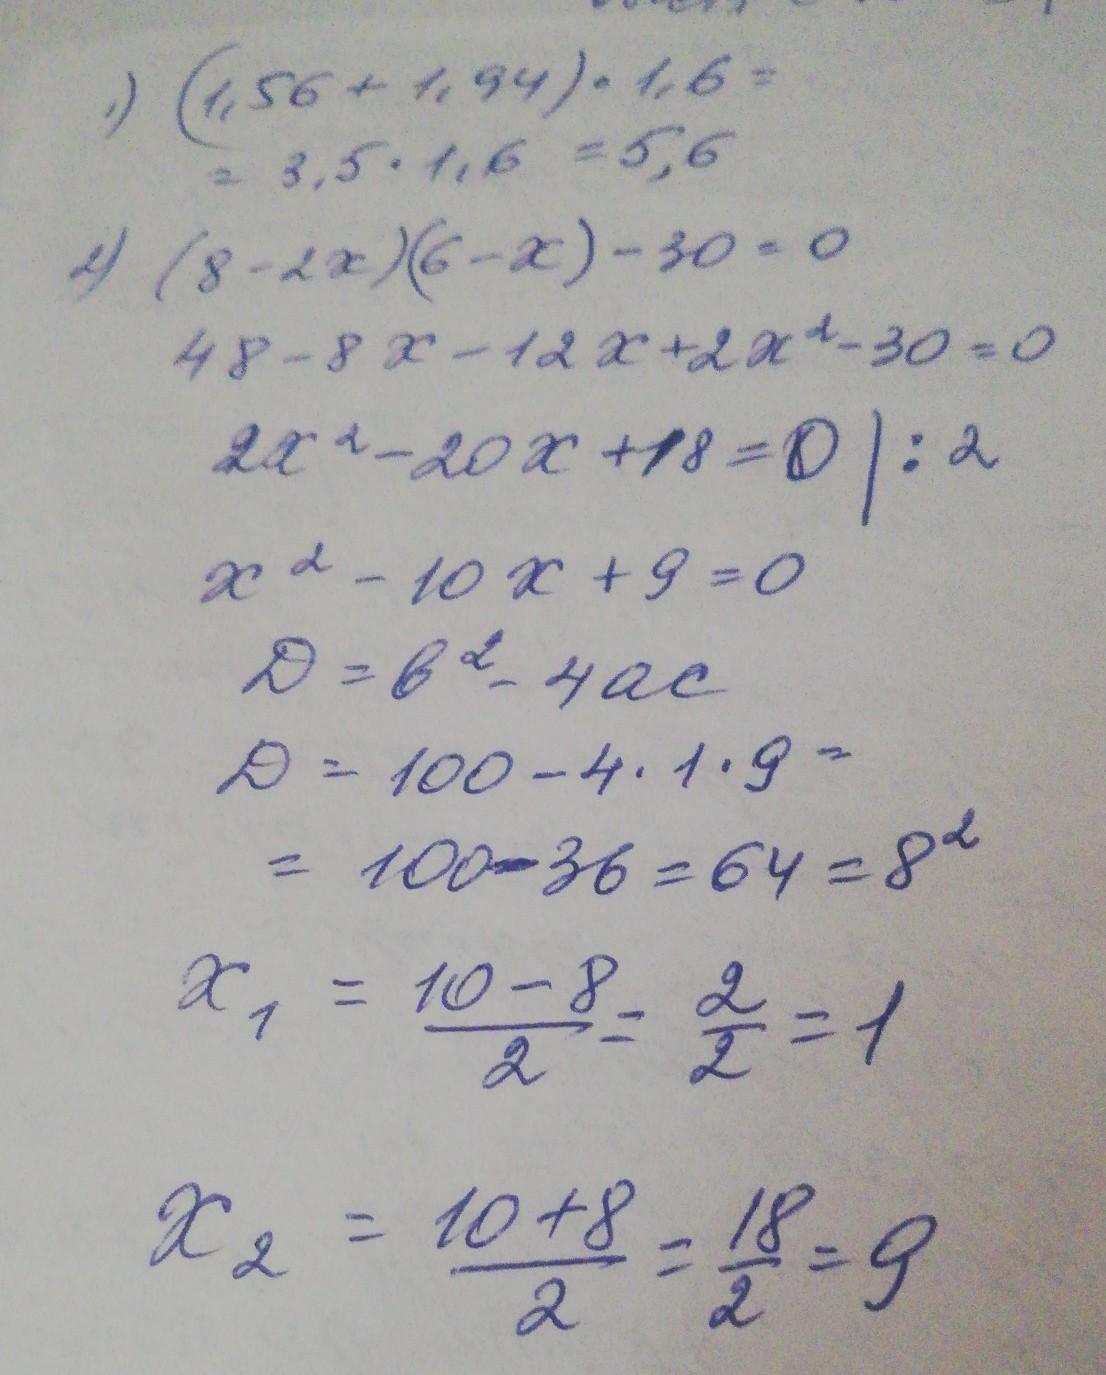 1) (1,56 + 1,94) · 1,6 =
= 3,5 · 1,6 = 5,6
2) (8 - 2x)(6 - x) - 30 = 0
48 - 8x - 12x + 2x² - 30 = 0
2x² - 20x + 18 = 0 | : 2
x² - 10x + 9 = 0
D = b² - 4ac
D = 100 - 4 · 1 · 9 =
= 100 - 36 = 64 = 8²
x₁ = (10 - 8)/2 = 2/2 = 1
x₂ = (10 + 8)/2 = 18/2 = 9